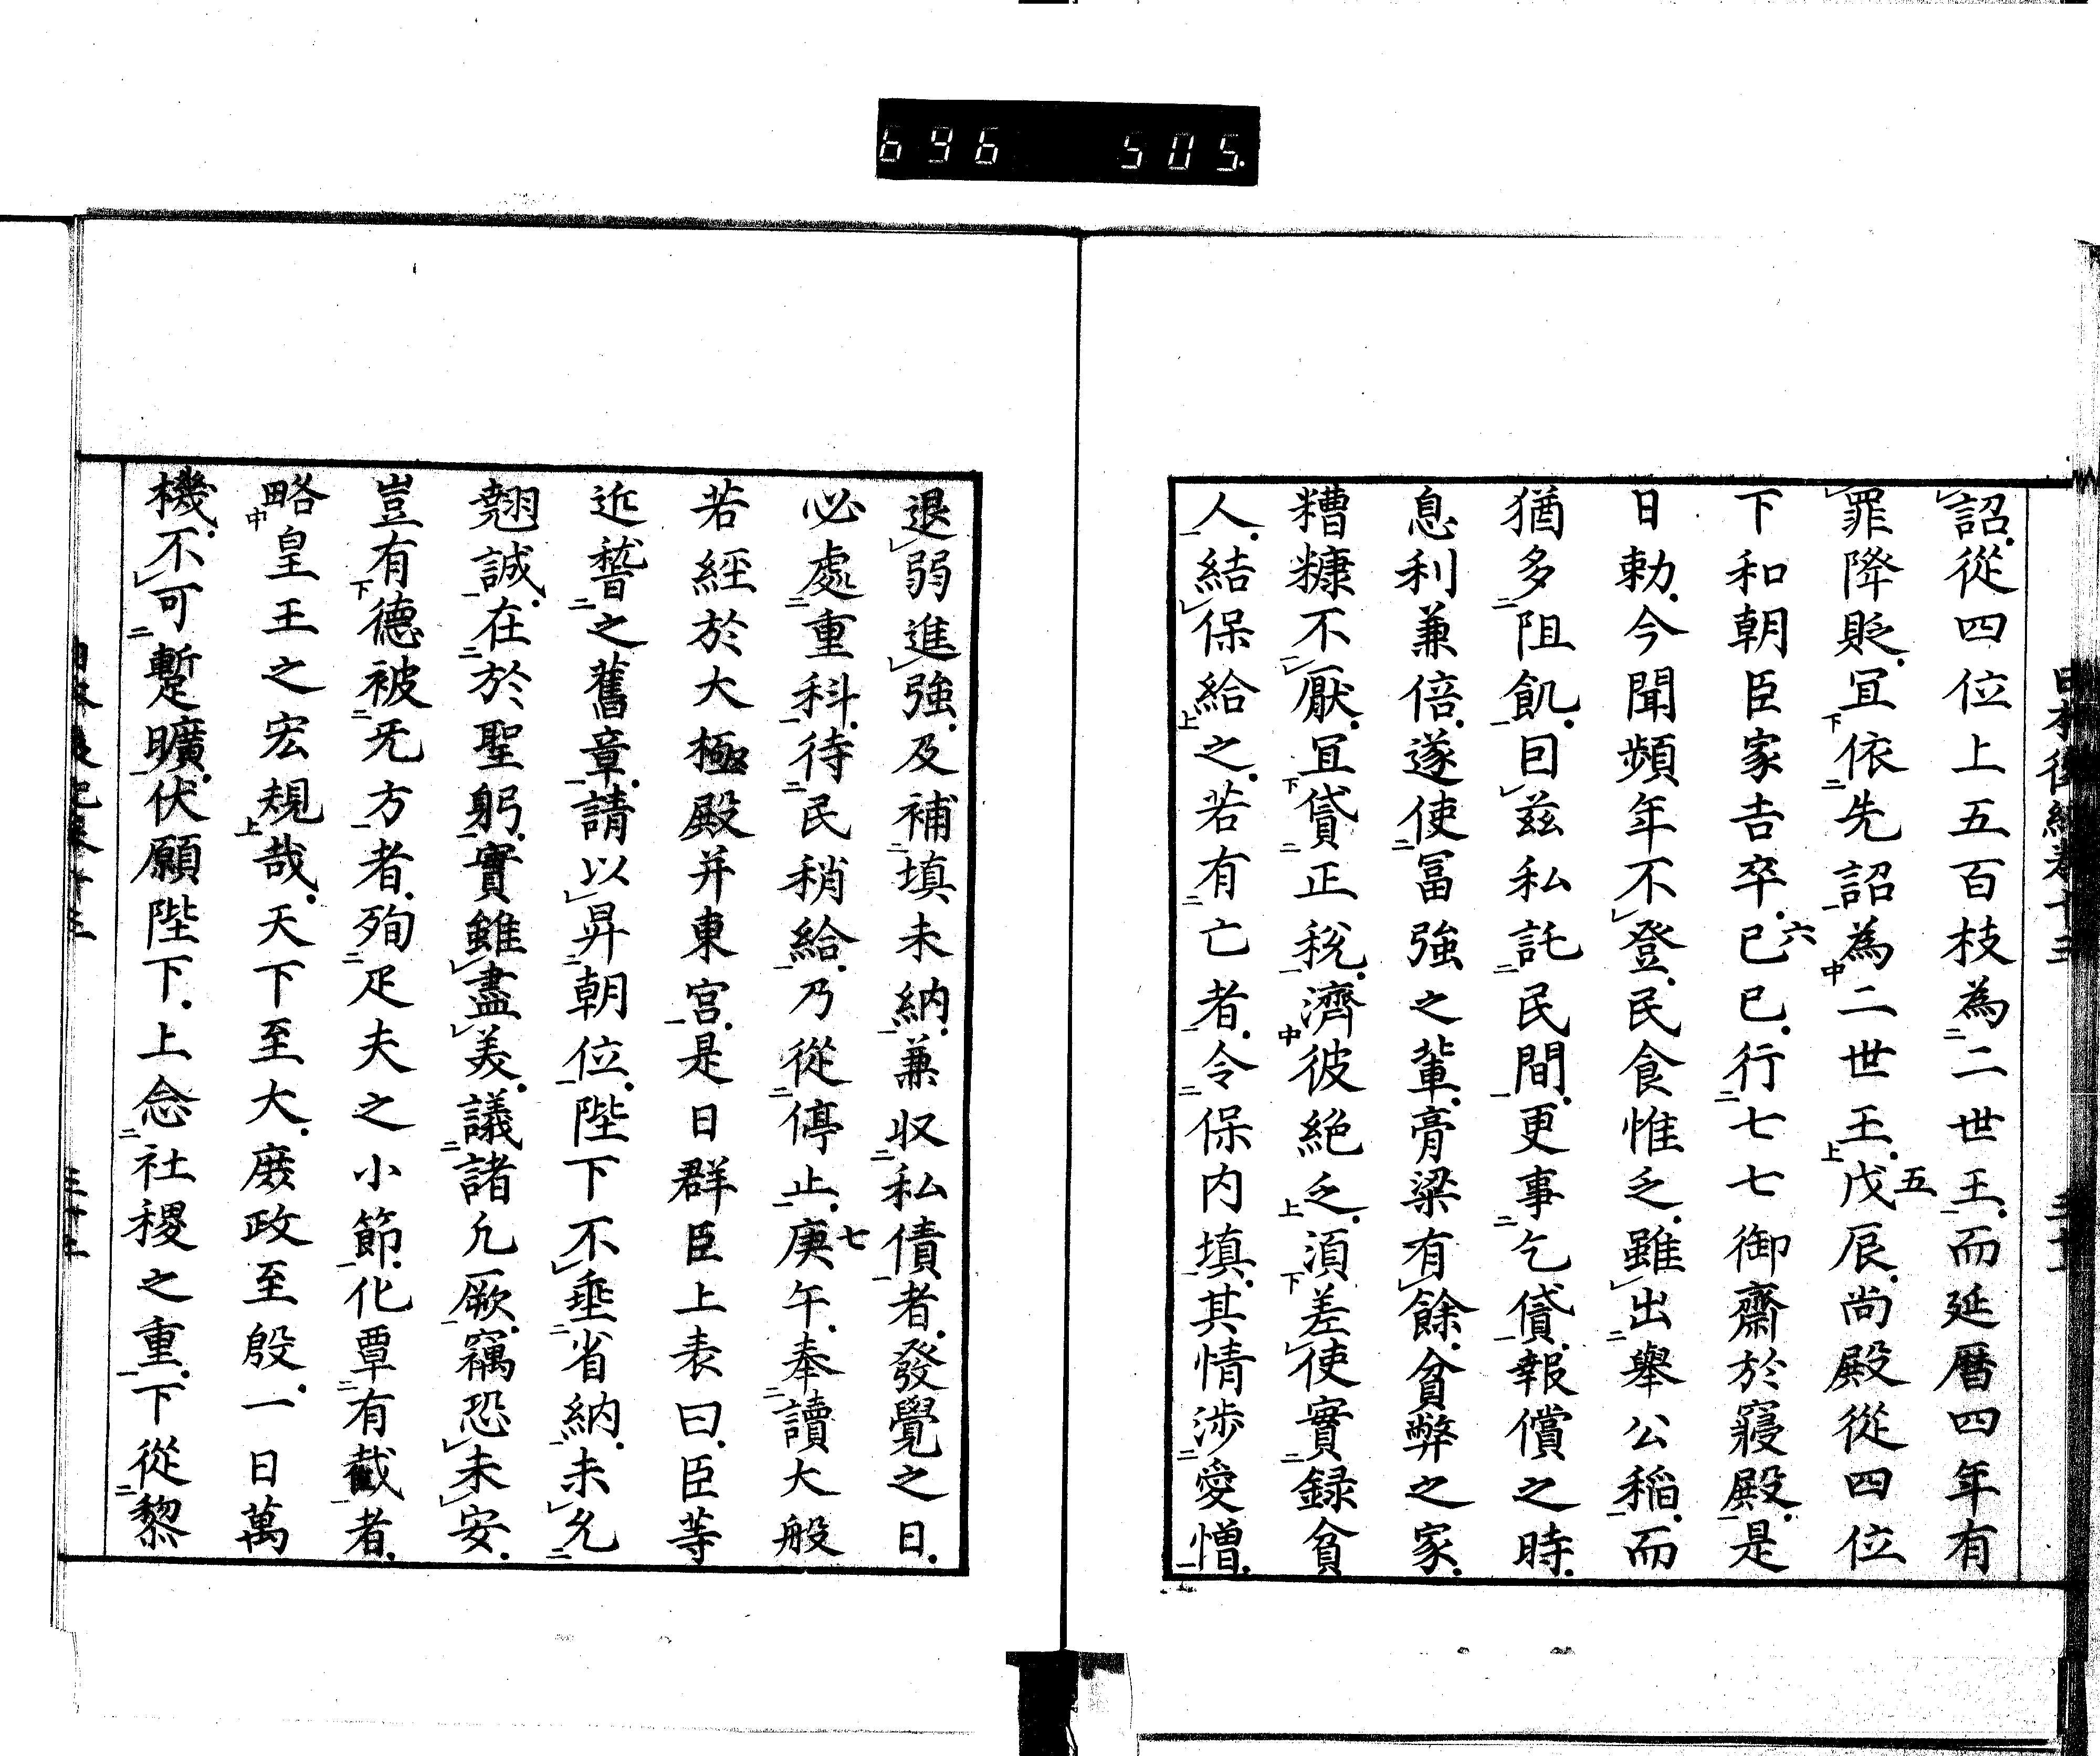 696 505
詔從四位上五百枝為二世王而延曆四年有
罪降貶宜依先詔為二世王戊辰五尚殿從四位
下和朝臣家吉卒己巳六行七七御齋於寢殿是
日勅今聞頻年不登民食惟乏雖出舉公稲而
猶多阻飢因茲私託民間更事乞貸報償之時
息利兼倍遂使冨強之輩膏梁有餘貧弊之家
糟糠不厭宜貸正稅濟彼絶乏須差使實録貧
人結保給之若有亡者令保内填其情渉愛憎
退弱進強及補填未納兼収私債者發覺之日
必處重科待民稍給乃從停止庚午七奉讀大般
若經於大極殿并東宮是日群臣上表曰臣等
近稽之舊章請以昇朝位陛下不垂省納未允
翹誠在於聖躬實雖盡美議諸允厥竊恐未安
豈有德被无方者殉疋夫之小節化覃有截者
略皇王之宏規哉天下至大庶政至殷一日萬
機不可暫曠伏願陛下上念社稷之重下從黎